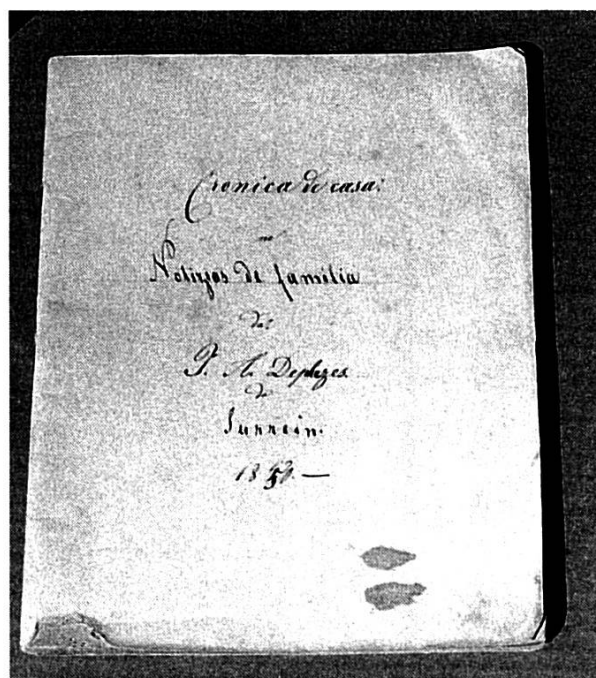 Cronica de casa:
Notizjas de familia
de
Deplazes
de
Surrein.